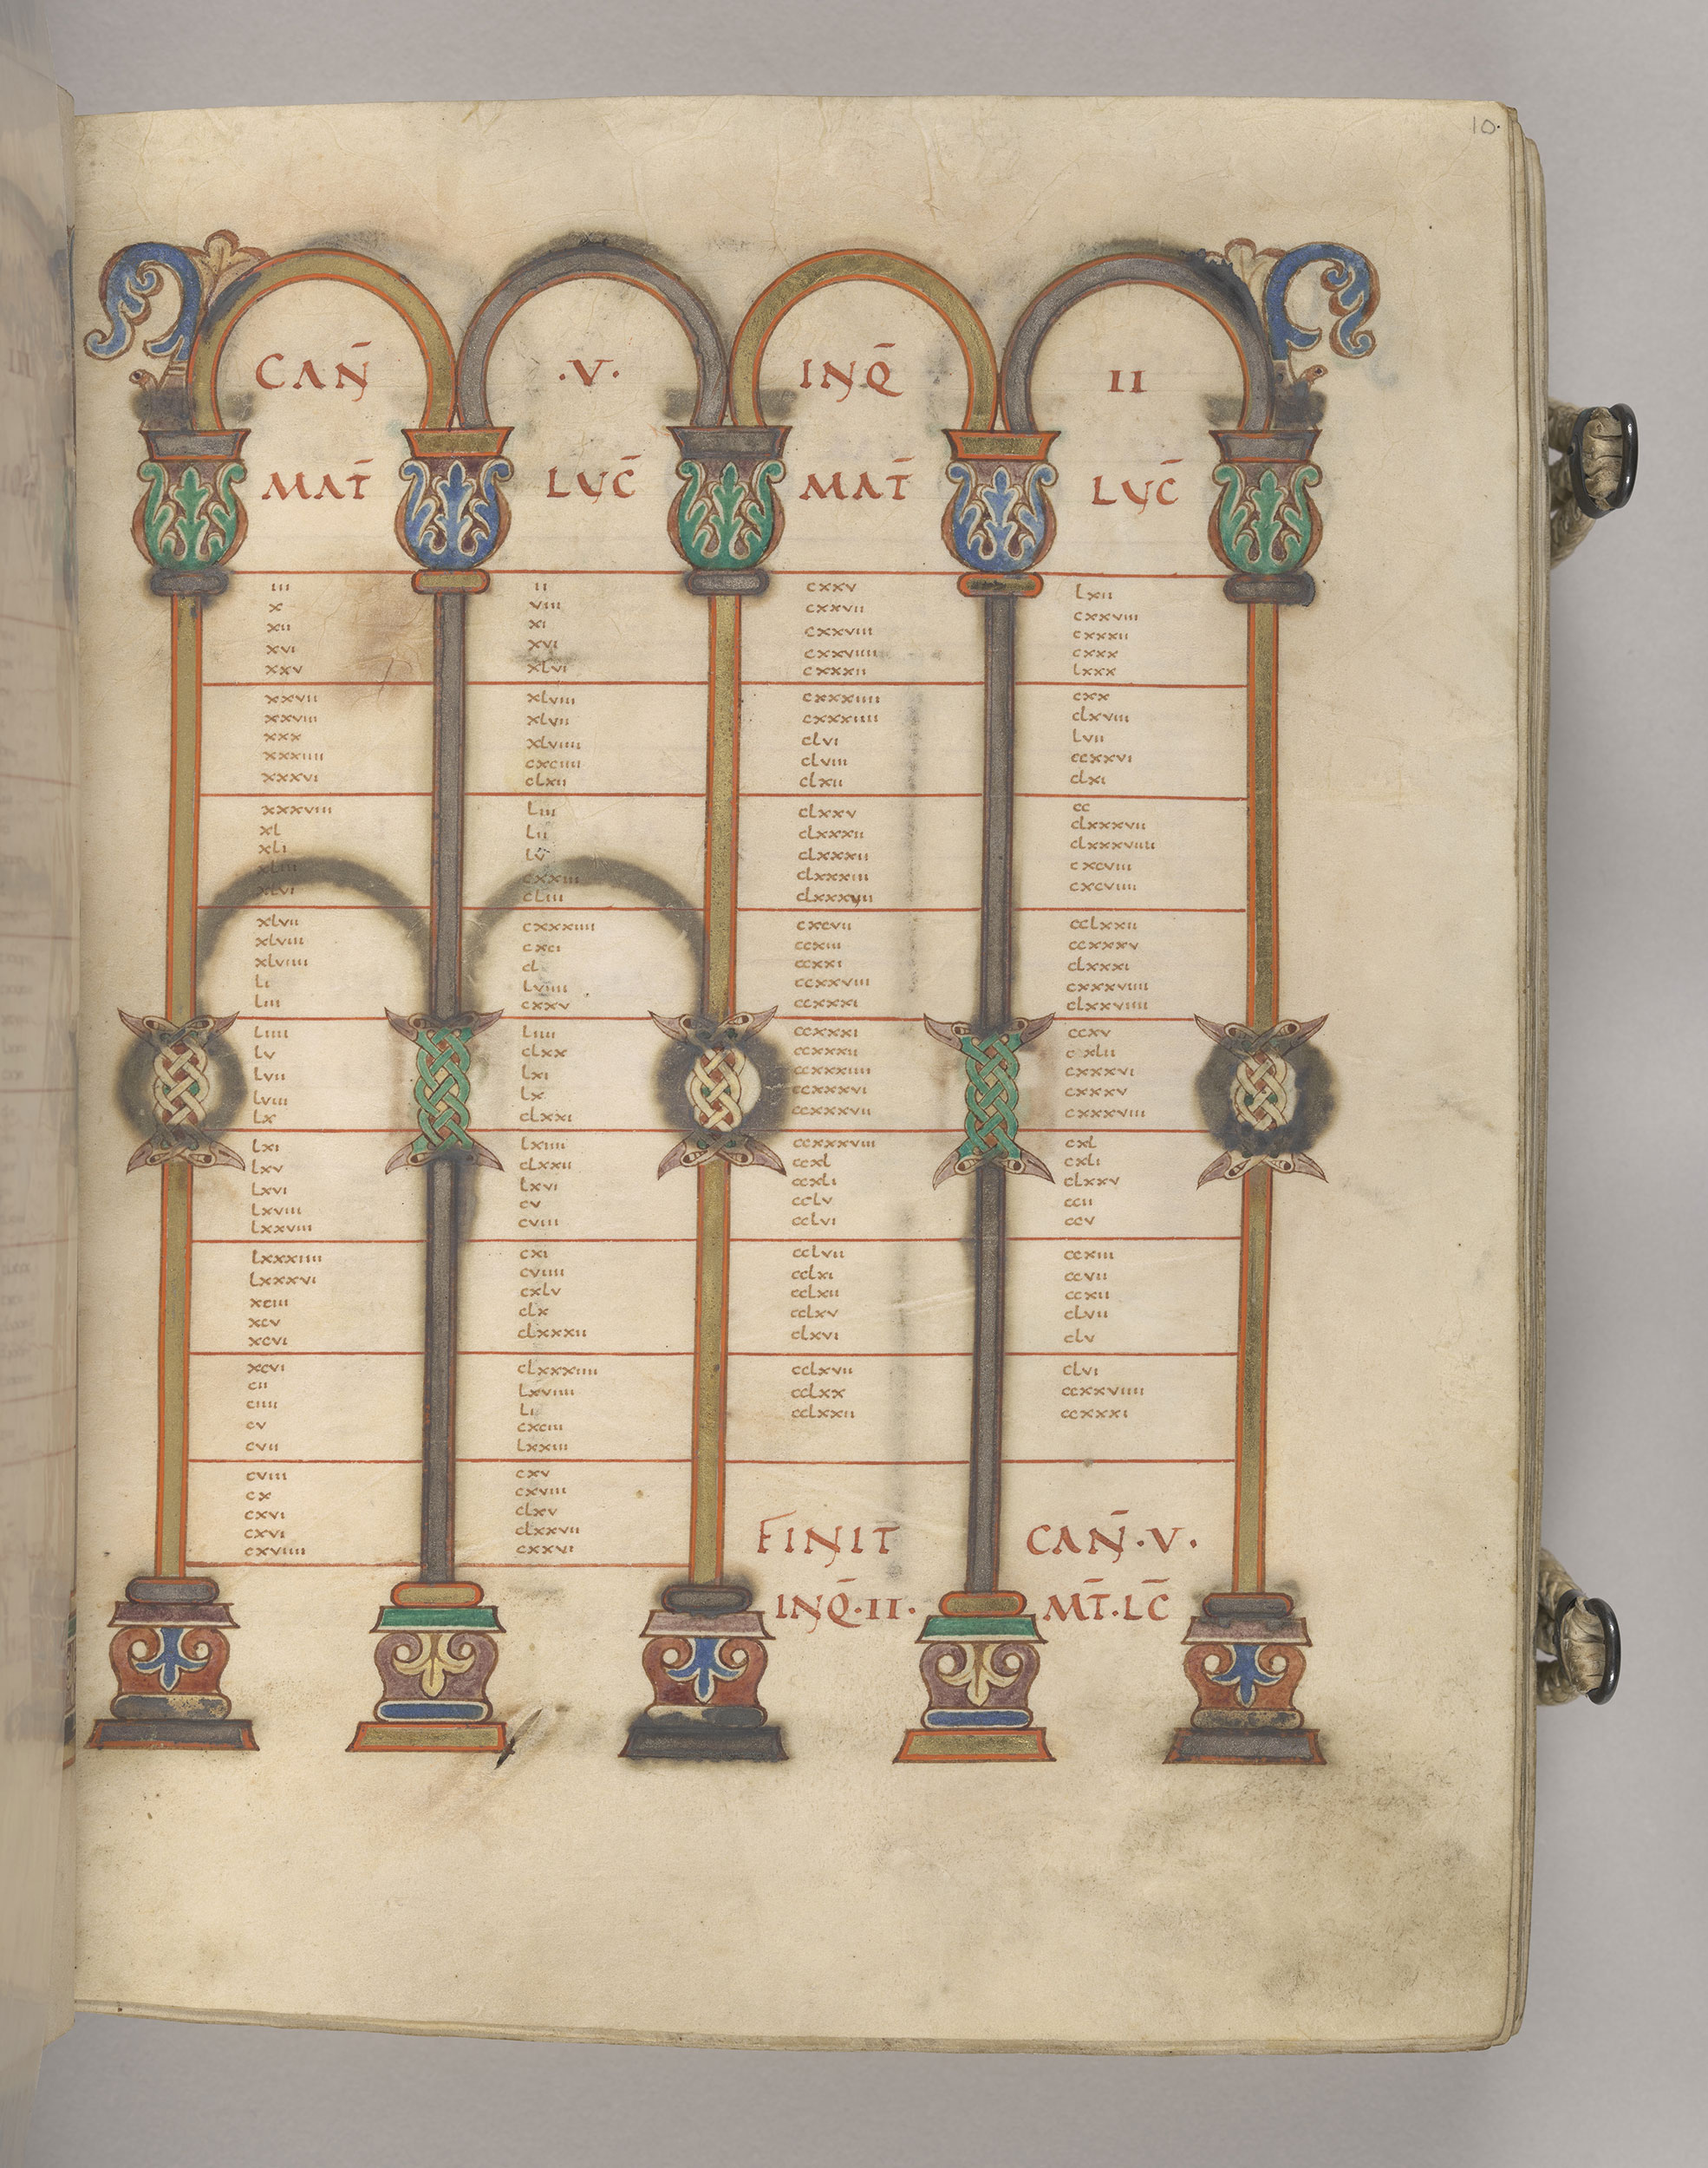 CAN̄ ·V· INQ̄ II
MAT̄ LVC̄ MAT̄ LVC̄
iii ii cxxv lxii
x viii cxxvii cxxviii
xii xi cxxviii cxxxii
xvi xvi cxxviiii cxxx
xxv xlvi cxxxii lxxx
xxvii xlviii cxxxiiii cxx
xxviii xlvii cxxxiiii clxviii
xxx xlviiii clvi lvii
xxxiiii cxciiii clviii ccxxvi
xxxvi clxii clxii clxi
xxxviii liii clxxv cc
xl lii clxxxii clxxxvii
xli lv clxxxii clxxxviiii
xliii cxxiii clxxxiii cxcviii
xlvi cliii clxxxvii cxcviiii
xlvii cxxxiiii cxcvii cclxxii
xlviii cxci ccxiii ccxxxv
xlviiii cl ccxxi clxxxi
li lviiii ccxxviii cxxxviiii
liii cxxv ccxxxi clxxviiii
liiii liiii ccxxxi ccxv
lv clxx ccxxxii cxlii
lvii lxi ccxxxiiii cxxxvi
lviii lx ccxxxvi cxxxv
lx clxxi ccxxxvii cxxxviii
lxi lxiiii ccxxxviii cxl
lxv clxxii ccxl cxli
lxvi lxvi ccxli clxxv
lxviii cv cclv ccii
lxxviii cviii cclvi ccv
lxxxiiii cxi cclvii ccxiii
lxxxvi cviiii cclxi ccvii
xciii cxlv cclxii ccxii
xcv clx cclxv clvii
xcvi clxxxii clxvi clv
xcvi clxxxiiii cclxvii clvi
cii lxviiii cclxx ccxxviiii
ciiii li cclxxii ccxxxi
cv cxciii
cvii lxxiii
cviii cxv
cx cxviii
cxvi clxv
cxvi clxxvii
cxviiii cxxvi
FINIT CAN̄·V·
INQ̄·II· MT̄·LC̄
10·